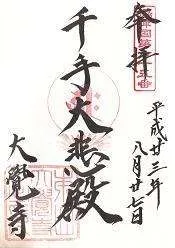 奉拝
平成廿三年
八月廿七日
千手大悲殿
大覺寺